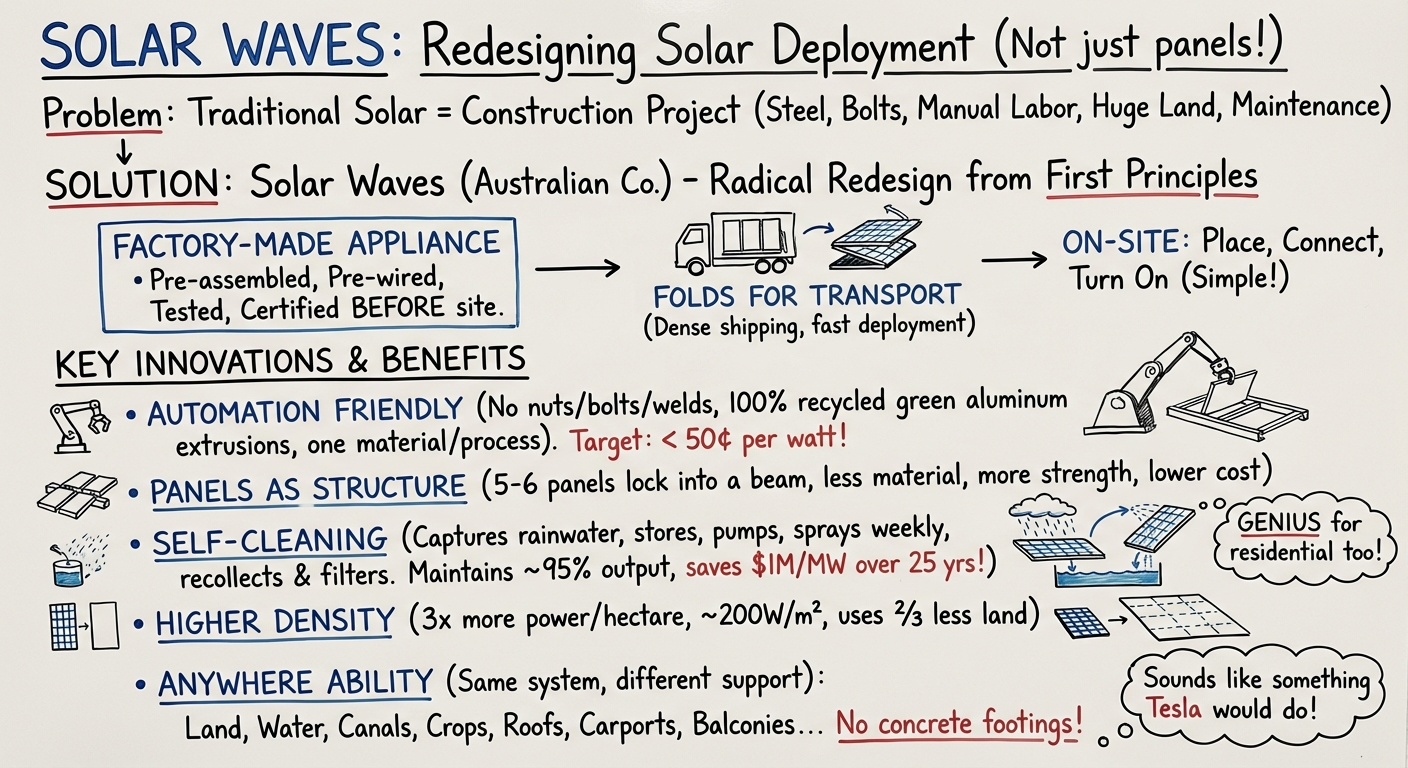 SOLAR WAVES: Redesigning Solar Deployment (Not just panels!)
Problem: Traditional Solar = Construction Project (Steel, Bolts, Manual Labor, Huge Land, Maintenance)
SOLUTION: Solar Waves (Australian Co.) – Radical Redesign from First Principles
FACTORY-MADE APPLIANCE
• Pre-assembled, Pre-wired,
Tested, Certified BEFORE site.
FOLDS FOR TRANSPORT
(Dense shipping, fast deployment)
ON-SITE: Place, Connect,
Turn On (Simple!)
KEY INNOVATIONS & BENEFITS
• AUTOMATION FRIENDLY (No nuts/bolts/welds, 100% recycled green aluminum
extrusions, one material/process). Target: < 50¢ per watt!
• PANELS AS STRUCTURE (5-6 panels lock into a beam, less material, more strength, lower cost)
• SELF-CLEANING (Captures rainwater, stores, pumps, sprays weekly,
recollects & filters. Maintains ~95% output, saves $1M/MW over 25 yrs!)
GENIUS for
residential too!
• HIGHER DENSITY (3x more power/hectare, ~200W/m², uses ⅔ less land)
• ANYWHERE ABILITY (Same system, different support):
Land, Water, Canals, Crops, Roofs, Carports, Balconies... No concrete footings!
Sounds like something
Tesla would do!